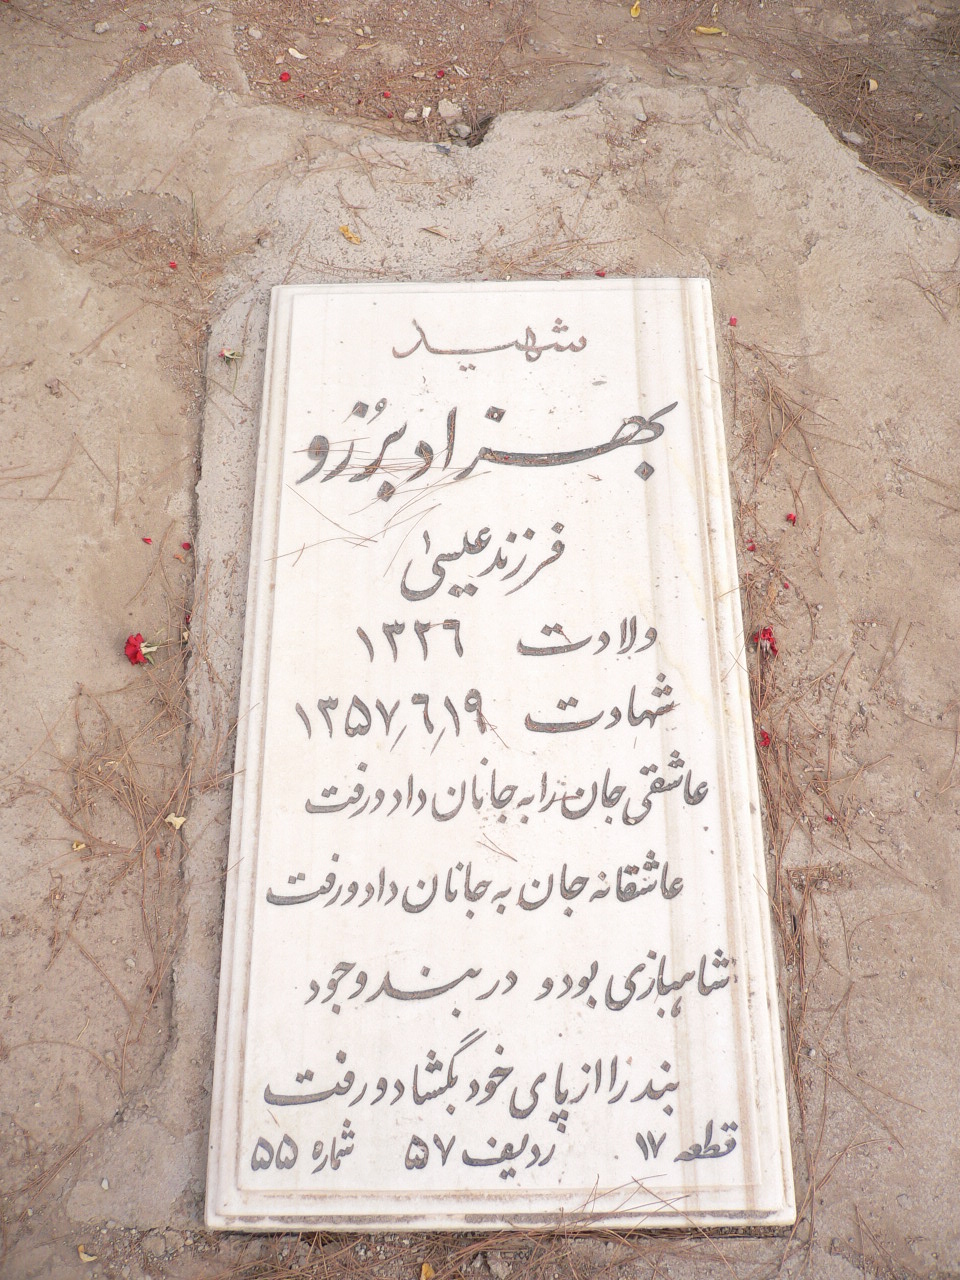 شهید
بهزاد بُرزو
فرزند عیسیٰ
ولادت ۱۳۲۶
شهادت ۱۳۵۷٫۶٫۱۹
عاشقی جان را به جانان داد و رفت
عاشقانه جان به جانان داد و رفت
شاهبازی بود و در بند وجود
بند را از پای خود بگشاد و رفت
قطعه ۱۷ ردیف ۵۷ شماره ۵۵